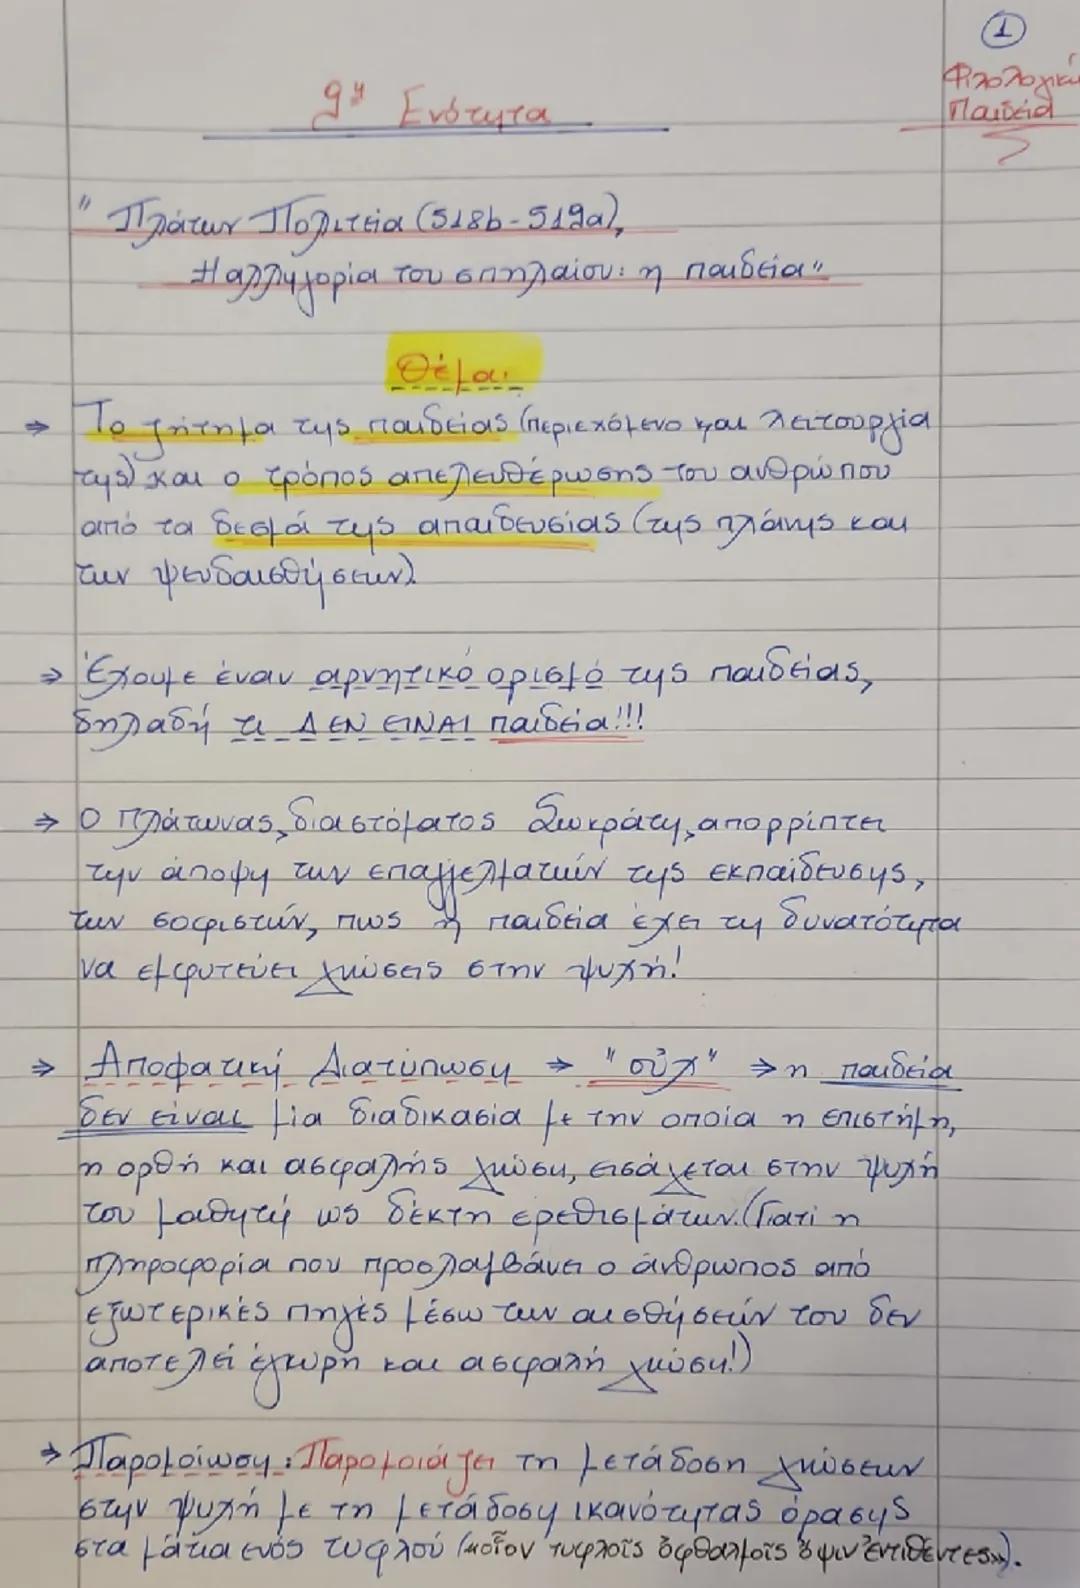 1
Φιλολογική
Παιδεία
9η Ενότητα
"Πλάτων Πολιτεία (518b-519a),
Η αλληγορία του σπηλαίου: η παιδεία"
Θέμα:
⇒ Το ζήτημα της παιδείας (περιεχόμενο και λειτουργία
της) και ο τρόπος απελευθέρωσης του ανθρώπου
από τα δεσμά της απαιδευσίας (της πλάνης και
των ψευδαισθήσεων).
⇒ Έχουμε έναν αρνητικό ορισμό της παιδείας,
δηλαδή τι ΔΕΝ ΕΙΝΑΙ παιδεία!!!
⇒ Ο Πλάτωνας, δια στόματος Σωκράτη, απορρίπτει
την άποψη των επαγγελματιών της εκπαίδευσης,
των σοφιστών, πως η παιδεία έχει τη δυνατότητα
να εμφυτεύει γνώσεις στην ψυχή!
⇒ Αποφατική Διατύπωση → "οὐχ" ⇒ η παιδεία
δεν είναι μία διαδικασία με την οποία η επιστήμη,
η ορθή και ασφαλής γνώση, εισάγεται στην ψυχή
του μαθητή ως δέκτη ερεθισμάτων. (Γιατί η
πληροφορία που προσλαμβάνει ο άνθρωπος από
εξωτερικές πηγές μέσω των αισθήσεών του δεν
αποτελεί έγκυρη και ασφαλή γνώση!)
⇒ Παρομοίωση: Παρομοιάζει τη μετάδοση γνώσεων
στην ψυχή με τη μετάδοση ικανότητας όρασης
στα μάτια ενός τυφλού («οἷον τυφλοῖς ὀφθαλμοῖς ὄψιν ἐντιθέντες»).